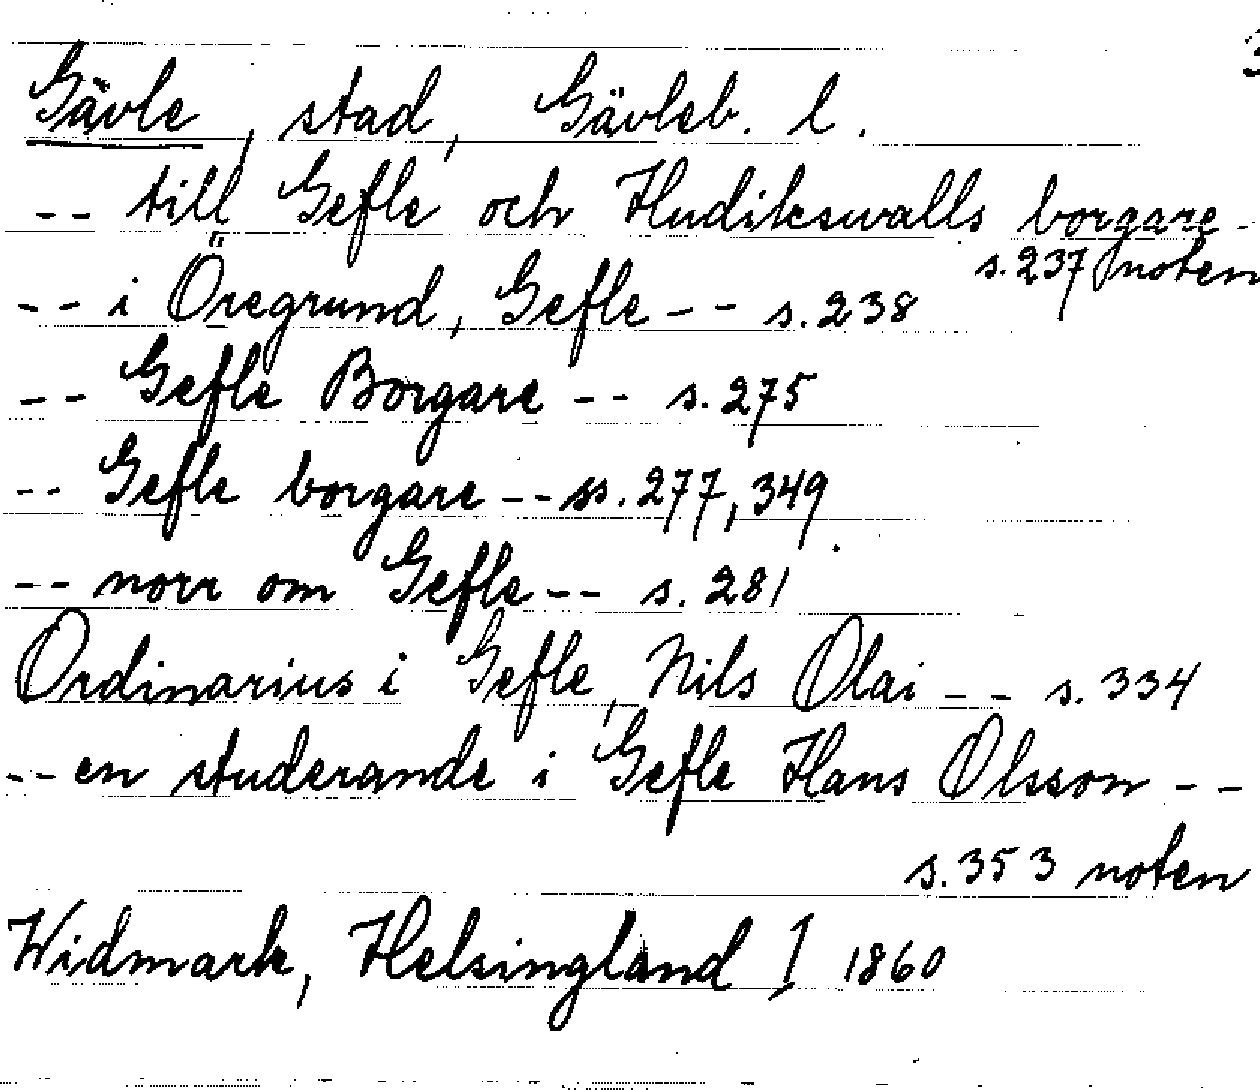 Gävle, stad, Gävleb. l.
-- till Gefle och Hudikswalls borgare -
s. 237 noten
-- i Öregrund, Gefle -- s. 238
-- Gefle Borgare -- s. 275
-- Gefle borgare -- ss. 277, 349
-- norr om Gefle -- s. 281
Ordinarius i Gefle, Nils Olai -- s. 334
-- en studerande i Gefle Hans Olsson --
s. 353 noten
Widmark, Helsingland I 1860